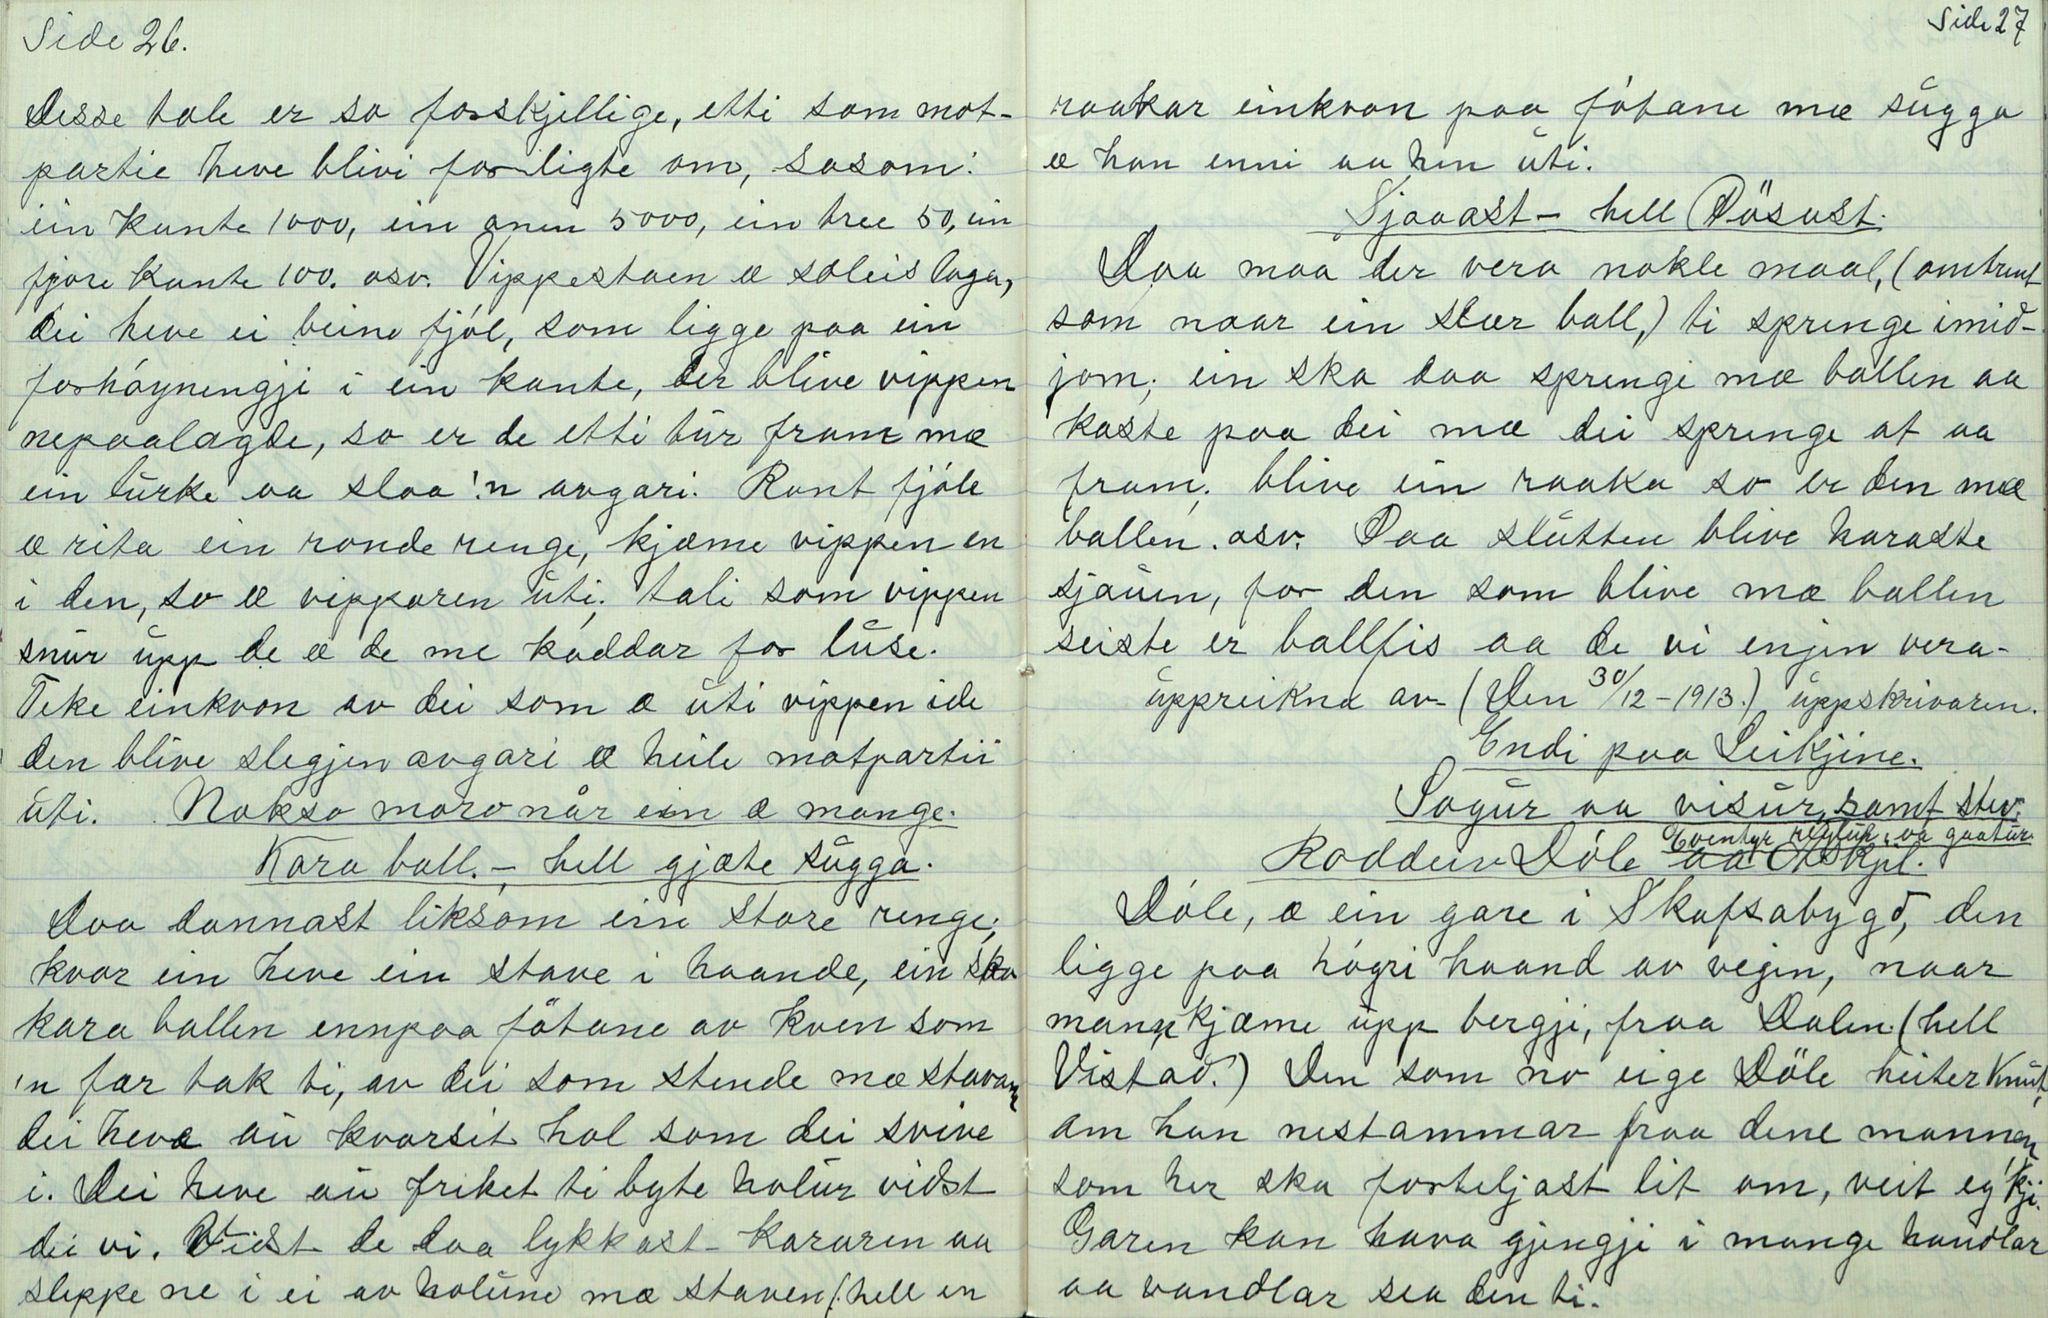 Side 26.
Disse tale er so forskjellige, etti som mot-
partie heve blivi forligte om, sosom:
ein kante 1000, ein anen 5000, ein tree 50, ein
fjore kante 100. osv. Vippestaen æ soleis laga,
dei heve ei beine fjól, som ligge paa ein
forhóynengji i ein kante, der blive vippen
nepaalagde, so er de etti tùr fram mæ
ein lùrke aa slaa 'n avgari. Runt fjóle
æ rita ein ronde renge, kjæme vippen en
i den, so æ vipparen ùti. tali som vippen
snùr ùpp de æ de me kaddar for lùse.
Teke einkvon av dei som æ ùti vippen ide
den blive slegjen avgari æ heile motpartii
ùti. Nokso moro når ein æ mange.
Kara ball. - hell gjæte sùgga.
Daa dannast liksom ein store renge,
kvor ein heve ein stave i haande, ein ska
kara ballen ennpaa fótane av kven som
'n fær tak ti, av dei som stende mæ stavann
dei heve aù kvarsit hol som dei svive
i. Dei heve aù friket ti byte holùr vidst
dei vi. Vidst de daa lykkast kararen aa
sleppe ne i ei av holùne mæ staven (hell en
Side 27
raakar einkvon paa fótane mæ sùgga
æ han enni aa hen ùti.
Sjaaast - hell Dösast.
Daa maa der vera nokle maal, (omtrent
som naar ein slær ball,) ti springe imid-
jom; ein ska daa springe mæ ballen aa
kaste paa dei mæ dei springe at aa
fram, blive ein raaka so er den mæ
ballen. osv. Paa slùtten blive haraste
sjauen, for den som blive mæ ballen
seiste er ballfis aa de vi enjen vera-
ùppreikna av- (Den 30/12-1913.) ùppskrivaren.
Endi paa Leikjine.
Sogùr aa visùr, samt stev.
Eventyr, reglùr, aa gaatùr.
Rodden Dóle aa Otskjil.
Dóle, æ ein gare i Skafsabygd, den
ligge paa hógri haand av vejin, naar
mann kjæme ùpp bergji, fraa Dalen (hell
Vistad.) Den som no eige Dóle heiter Knùt,
om han nestammar fraa dene mannen
som her ska forteljast lit om, veit eg 'kji.
Garen kan hava gjengji i mange handlar
aa vandlar sea den ti.